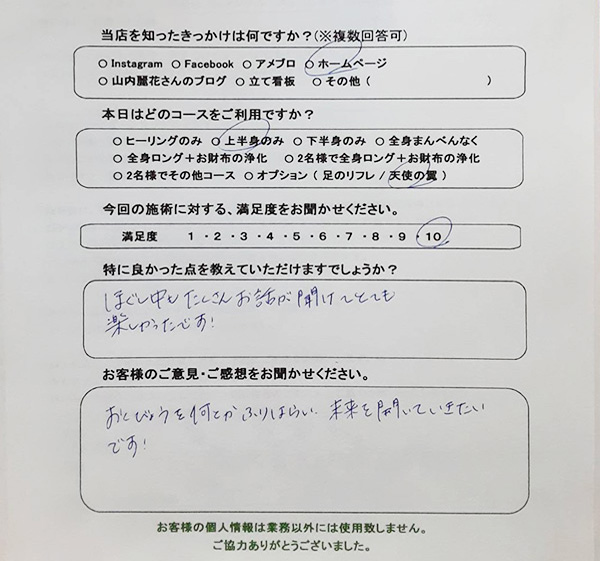 当店を知ったきっかけは何ですか?(※複数回答可)
○ Instagram ○ Facebook ○ アメブロ ○ ホームページ
○ 山内麗花さんのブログ ○ 立て看板 ○ その他 ( )
本日はどのコースをご利用ですか?
○ ヒーリングのみ ○ 上半身のみ ○ 下半身のみ ○ 全身まんべんなく
○ 全身ロング+お財布の浄化 ○ 2名様で全身ロング+お財布の浄化
○ 2名様でその他コース ○ オプション ( 足のリフレ / 天使の翼 )
今回の施術に対する、満足度をお聞かせください。
満足度 1 ・ 2 ・ 3 ・ 4 ・ 5 ・ 6 ・ 7 ・ 8 ・ 9 ・ 10
特に良かった点を教えていただけますでしょうか?
ほぐし中もたくさんお話が聞けてとても
楽しかったです!
お客様のご意見・ご感想をお聞かせください。
おくびょうを何とかふりはらい、未来を開いていきたい
です!
お客様の個人情報は業務以外には使用致しません。
ご協力ありがとうございました。